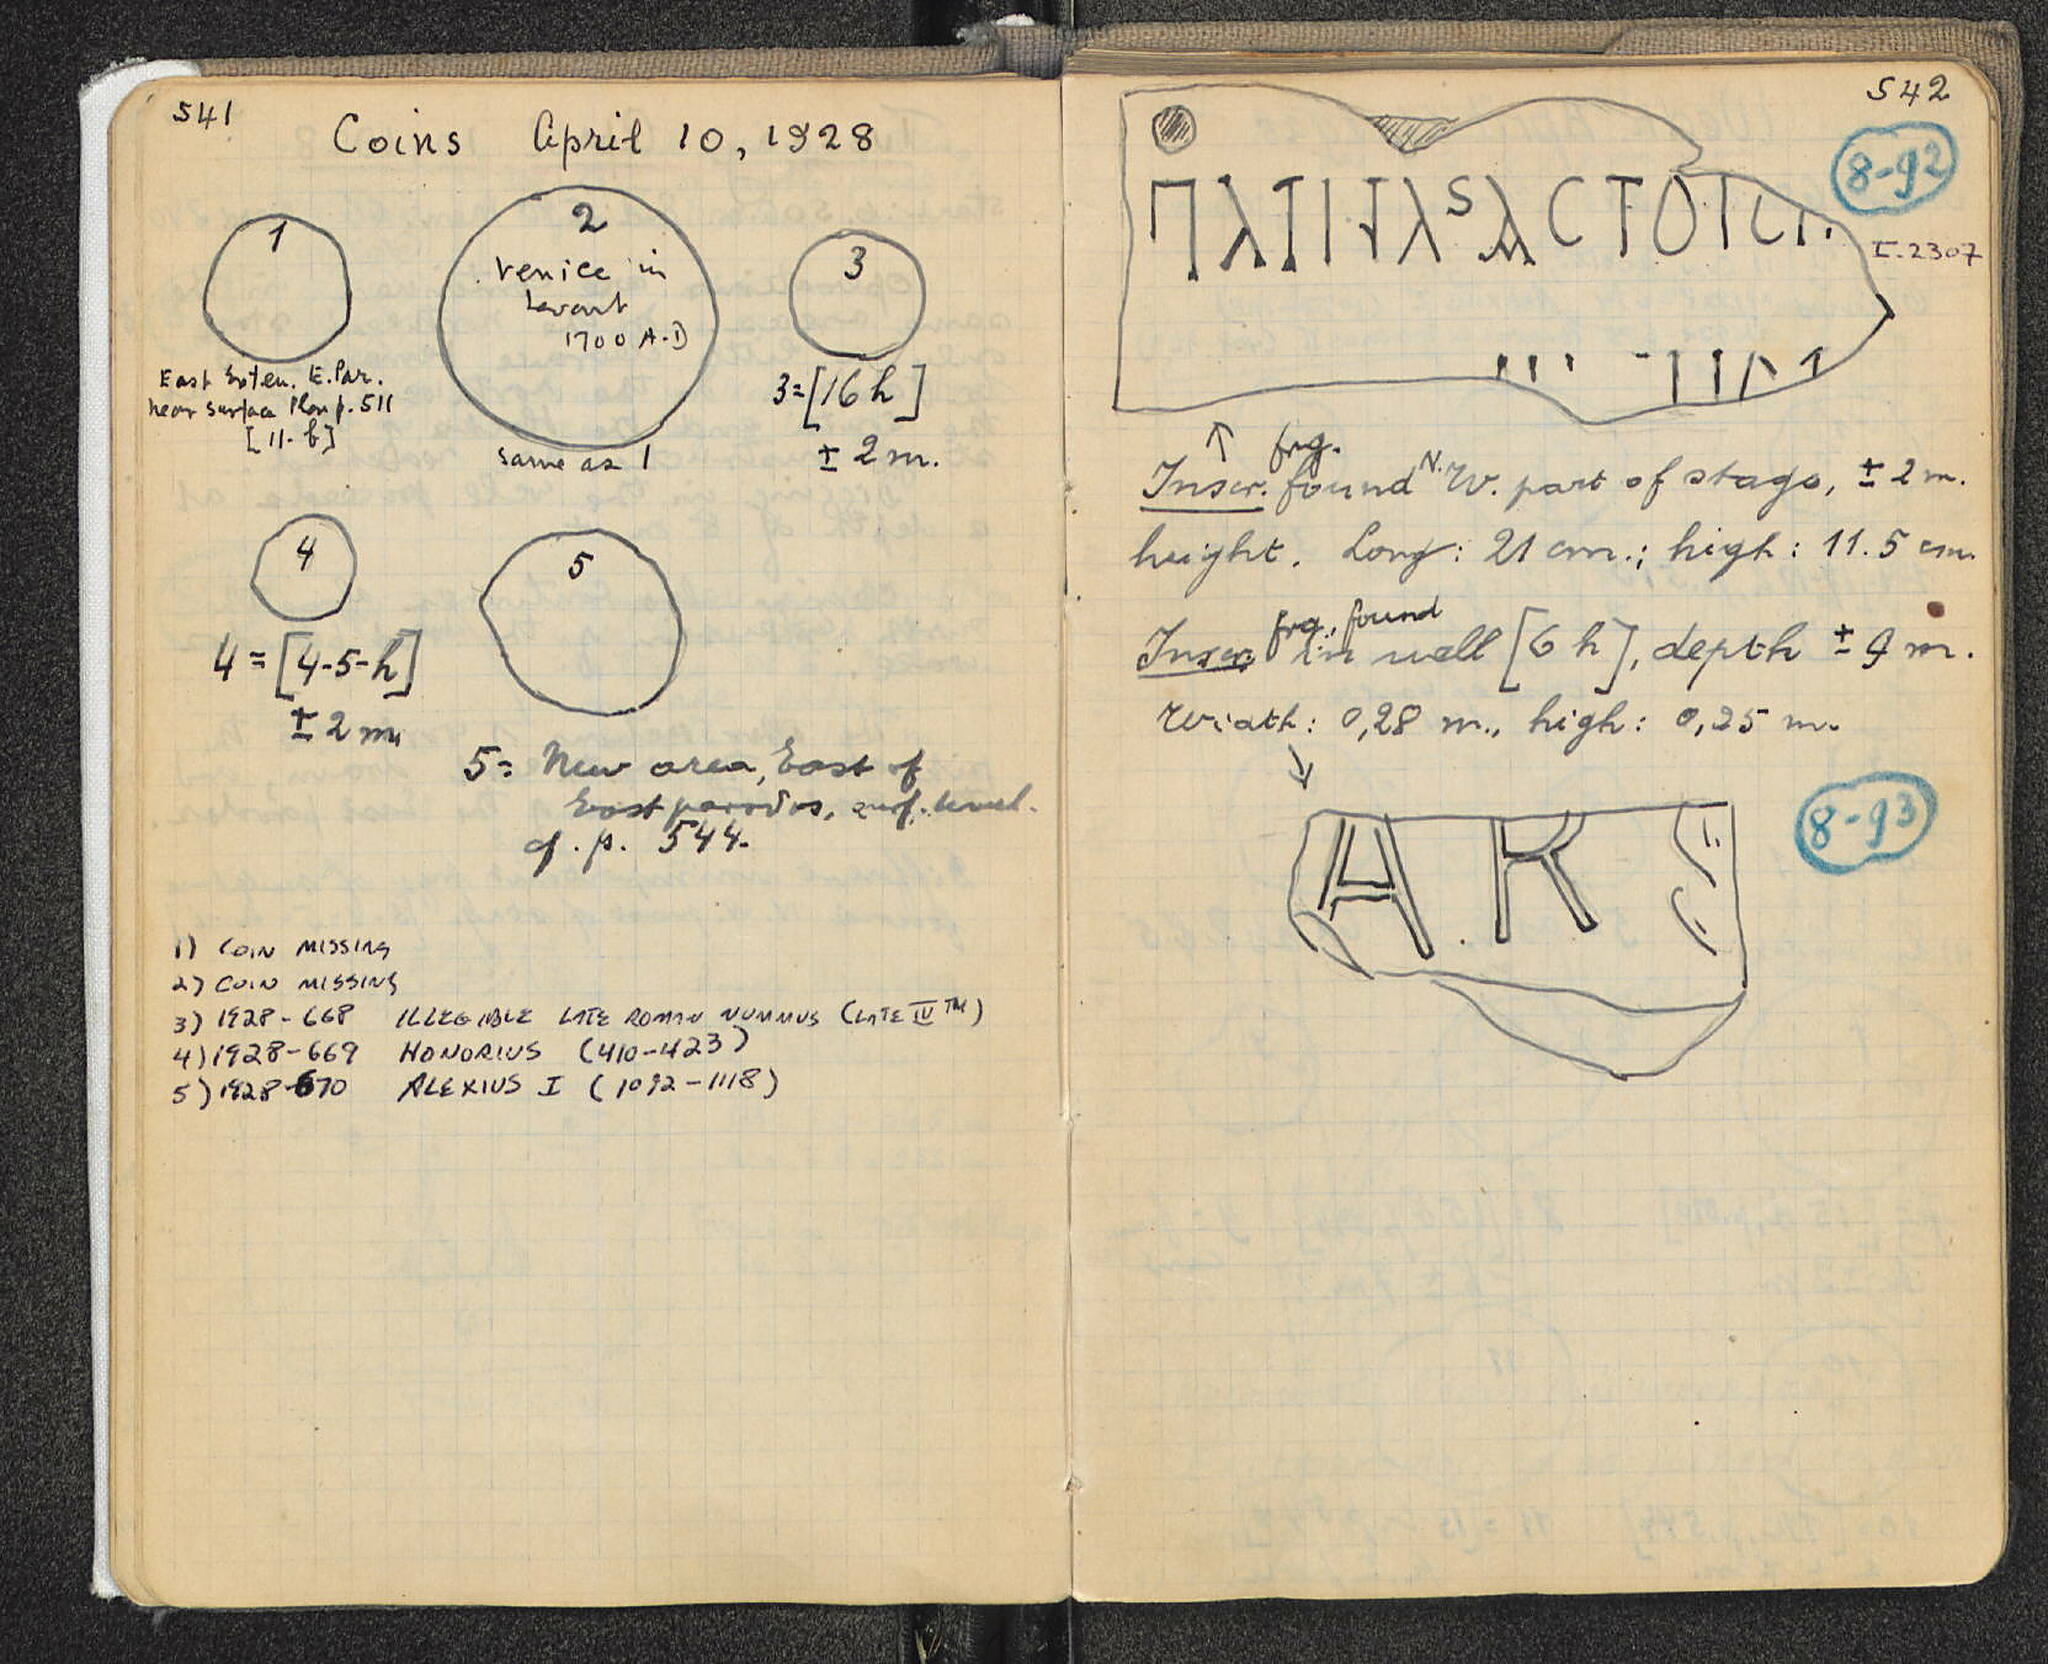 541
Coins April 10, 1928
1
East Exten. E. Par.
near surface Plan p. 511
[11-b]
2
Venice in
Levant
1700 A.D
same as 1
3
3=[16 h]
± 2 m.
4
4 = [4-5-h]
± 2 m.
5
5= New area, East of
East parodos, surf. level.
cf. p. 544.
1) COIN MISSING
2) COIN MISSING
3) 1928-668 ILLEGIBLE LATE ROMAN NUMMUS (LATE IV TH)
4) 1928-669 HONORIUS (410-423)
5) 1928-670 ALEXIUS I (1092-1118)
542
8-92
I.2307
↑ frg.
Inscr. found N.W. part of stage, ± 2 m.
height. Long: 21 cm.; high: 11.5 cm.
frg., found
Inscr. in well [6 h], depth ± 9 m.
Width: 0,28 m., high: 0,25 m.
↓
8-93